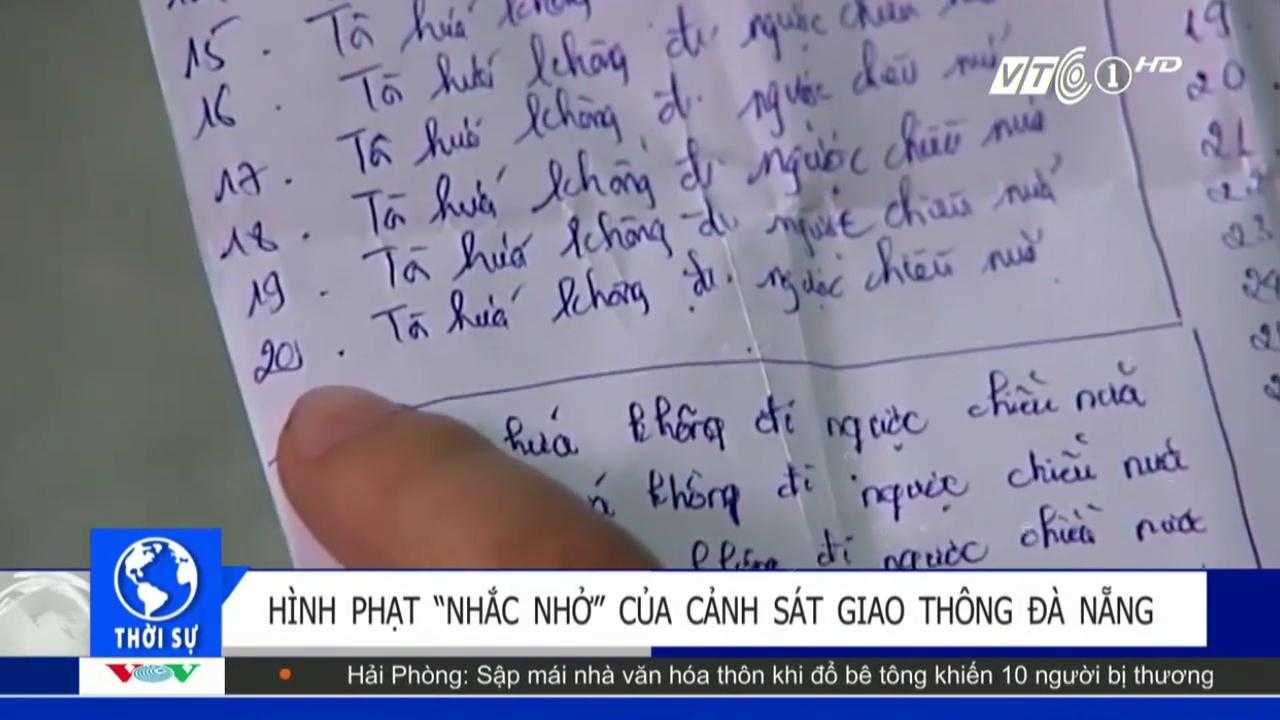 15. Tô hứa không
16. Tô hứa không đi ngược chiều
17. Tô hứa không đi ngược chiều nữa
18. Tô hứa không đi ngược chiều nữa
19. Tô hứa không đi ngược chiều nữa
20. Tô hứa không đi ngược chiều nữa
hứa không đi ngược chiều nữa
không đi ngược chiều nữa
đi ngược chiều
19
20
21
23
VTC 1 HD
THỜI SỰ
HÌNH PHẠT “NHẮC NHỞ” CỦA CẢNH SÁT GIAO THÔNG ĐÀ NẴNG
VOV
Hải Phòng: Sập mái nhà văn hóa thôn khi đổ bê tông khiến 10 người bị thương